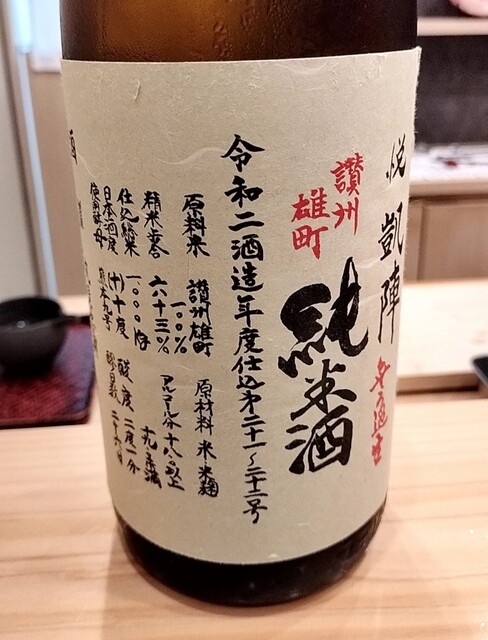 悦凱陣
無過生
讃州
雄町
純米酒
令和二酒造年度仕込第二十一〜二十二号
原料米 讃州雄町
一〇〇%
原材料 米 米麹
精米歩合 六十三%
アルコール分 十八以上
十九未満
仕込総米 一〇〇〇kg
日本酒度 (十)十度
酸度 二度一分
使用酵母 熊本九号
酒